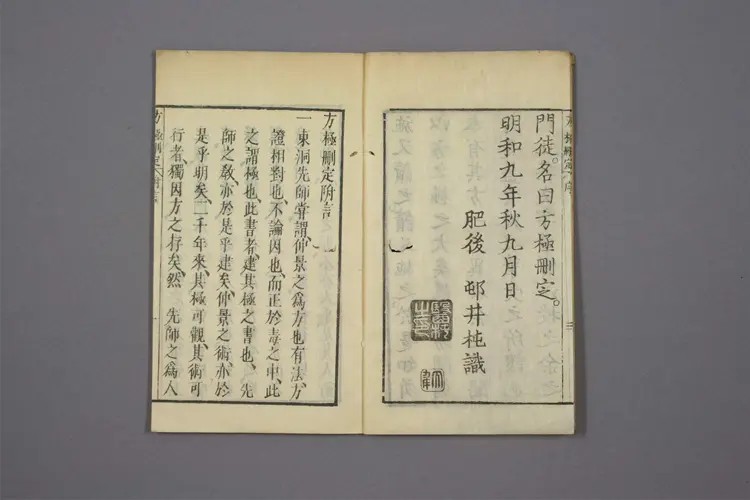 門徒。名曰方極刪定。
明和九年秋九月日
肥後 邨井杶識
方極刪定附言
一東洞先師嘗謂、仲景之爲方也有法、方
證相對也、不論因也、而正於毒之中、此
之謂極也、此書者、建其極之書也、先
師之敎、亦於是乎建矣、仲景之術、亦於
是乎明矣、二千年來、其極可觀、其術可
行者、獨因方之存矣、然 先師之爲人